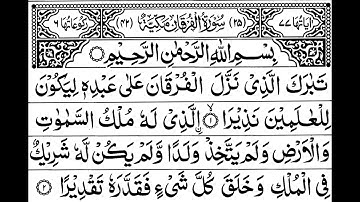 اٰیَاتُهَا ۷۷ (۲۵) سُوْرَةُ الْفُرْقَانِ مَكِّیَّةٌ (۴۲) رُكُوْعَاتُهَا ۶
بِسْمِ اللّٰهِ الرَّحْمٰنِ الرَّحِیْمِ
تَبٰرَكَ الَّذِیْ نَزَّلَ الْفُرْقَانَ عَلٰی عَبْدِهٖ لِیَكُوْنَ
لِلْعٰلَمِیْنَ نَذِیْرًا ۙ﴿۱﴾ الَّذِیْ لَهٗ مُلْكُ السَّمٰوٰتِ
وَالْاَرْضِ وَلَمْ یَتَّخِذْ وَلَدًا وَّلَمْ یَكُنْ لَّهٗ شَرِیْكٌ
فِی الْمُلْكِ وَخَلَقَ كُلَّ شَیْءٍ فَقَدَّرَهٗ تَقْدِیْرًا ﴿۲﴾